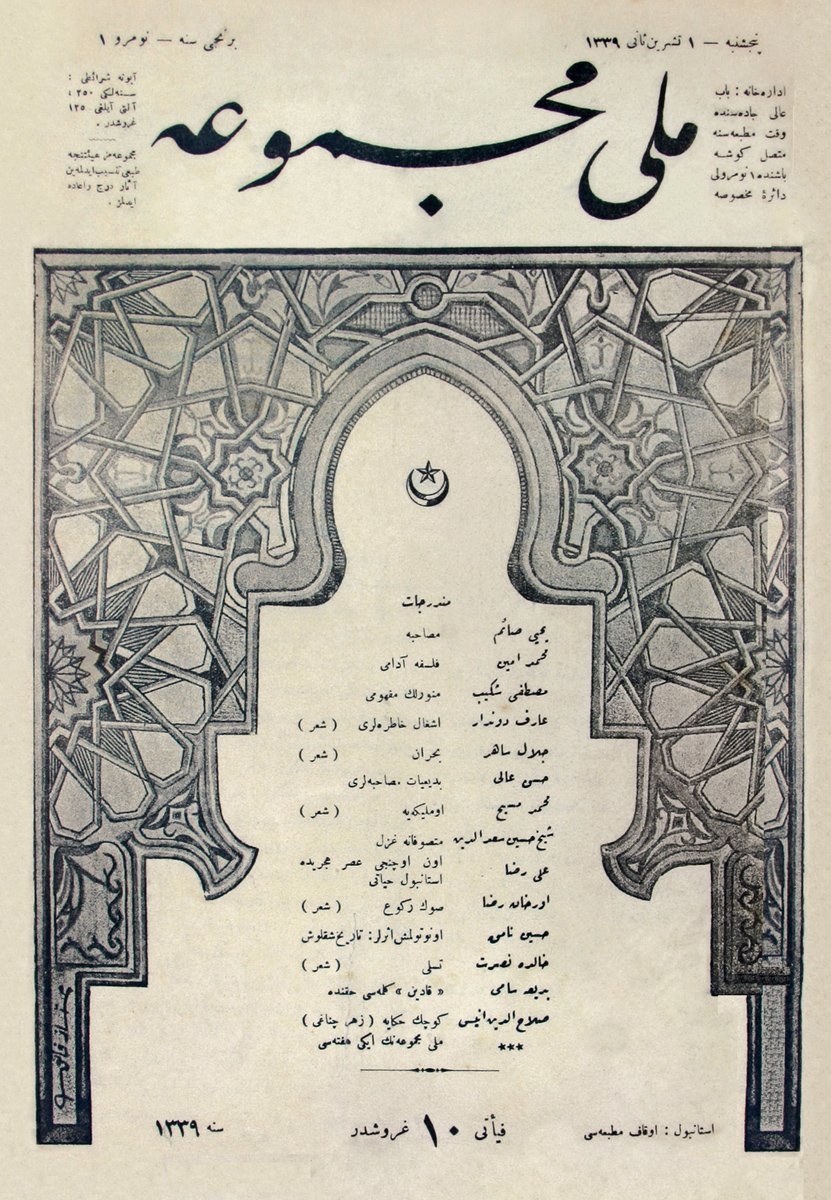 پنجشنبه — ١ تشرین ثانی ١٣٣٩
برنجی سنه — نومرو ١
اداره‌خانه : باب
عالی جاده‌سنده
وقت مطبعه‌سنه
متصل کوشه
باشنده ١ نومرولی
دائرهٔ مخصوصه
ملی مجموعه
آبونه شرائطی :
سنه‌لکی ٢٥٠ ؛
آلتی آیلغی ١٢٥
غروشدر .
مجموعه‌مز هیئتنجه
طبعی تنسیب ایدلمه‌ین
آثار درج واعاده
ایدلمز .
مندرجات
یحیی صائم مصاحبه
محمد امین فلسفه آدامی
مصطفی شکیب منورلك مفهومی
عارف دوندار اشغال خاطره‌لری ( شعر )
جلال ساهر بحران ( شعر )
حسن عالی بدیعیات مصاحبه‌لری
محمد مسیح اوملیکه‌یه ( شعر )
شیخ حسین سعدالدین متصوفانه غزل
علی رضا اون اوچنجی عصر هجریده
استانبول حیاتی
اورخان رضا صوك رکوع ( شعر )
حسین نامی اونوتولمش اثرلر: تاریخ شقلوش
خالده نصرت تسلی ( شعر )
بدیعه سامی « قادین » کلمه‌سی حقنده
صلاح الدین انیس کوچك حکایه ( زهر چناغی )
*** ملی مجموعه‌نك ایکی هفته‌سی
استانبول : اوقاف مطبعه‌سی
فیأتی ١٠ غروشدر
سنه ١٣٣٩